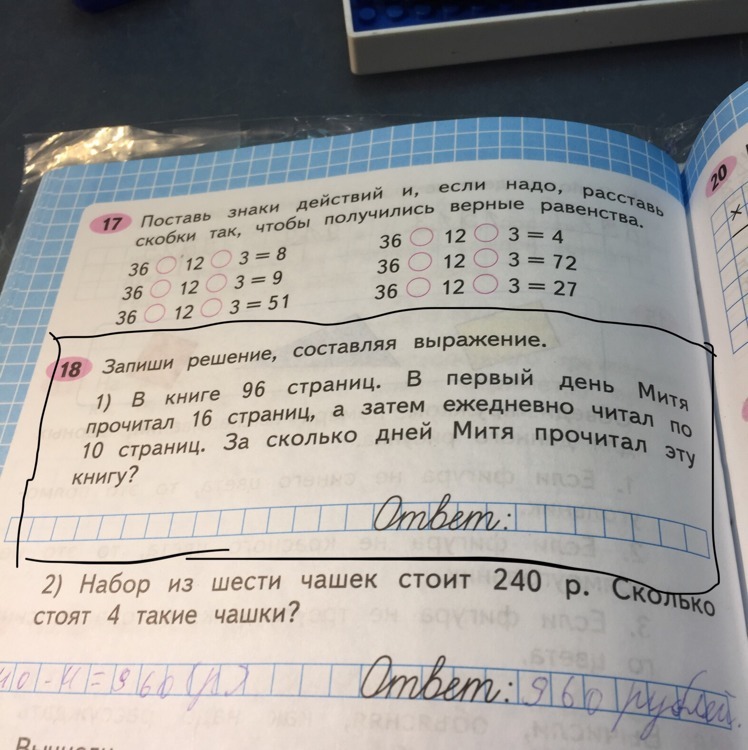 17 Поставь знаки действий и, если надо, расставь
скобки так, чтобы получились верные равенства.
36 ○ 12 ○ 3 = 8
36 ○ 12 ○ 3 = 9
36 ○ 12 ○ 3 = 51
36 ○ 12 ○ 3 = 4
36 ○ 12 ○ 3 = 72
36 ○ 12 ○ 3 = 27
18 Запиши решение, составляя выражение.
1) В книге 96 страниц. В первый день Митя
прочитал 16 страниц, а затем ежедневно читал по
10 страниц. За сколько дней Митя прочитал эту
книгу?
Ответ:
2) Набор из шести чашек стоит 240 р. Сколько
стоят 4 такие чашки?
=960 Ответ: 960 рублей.
20